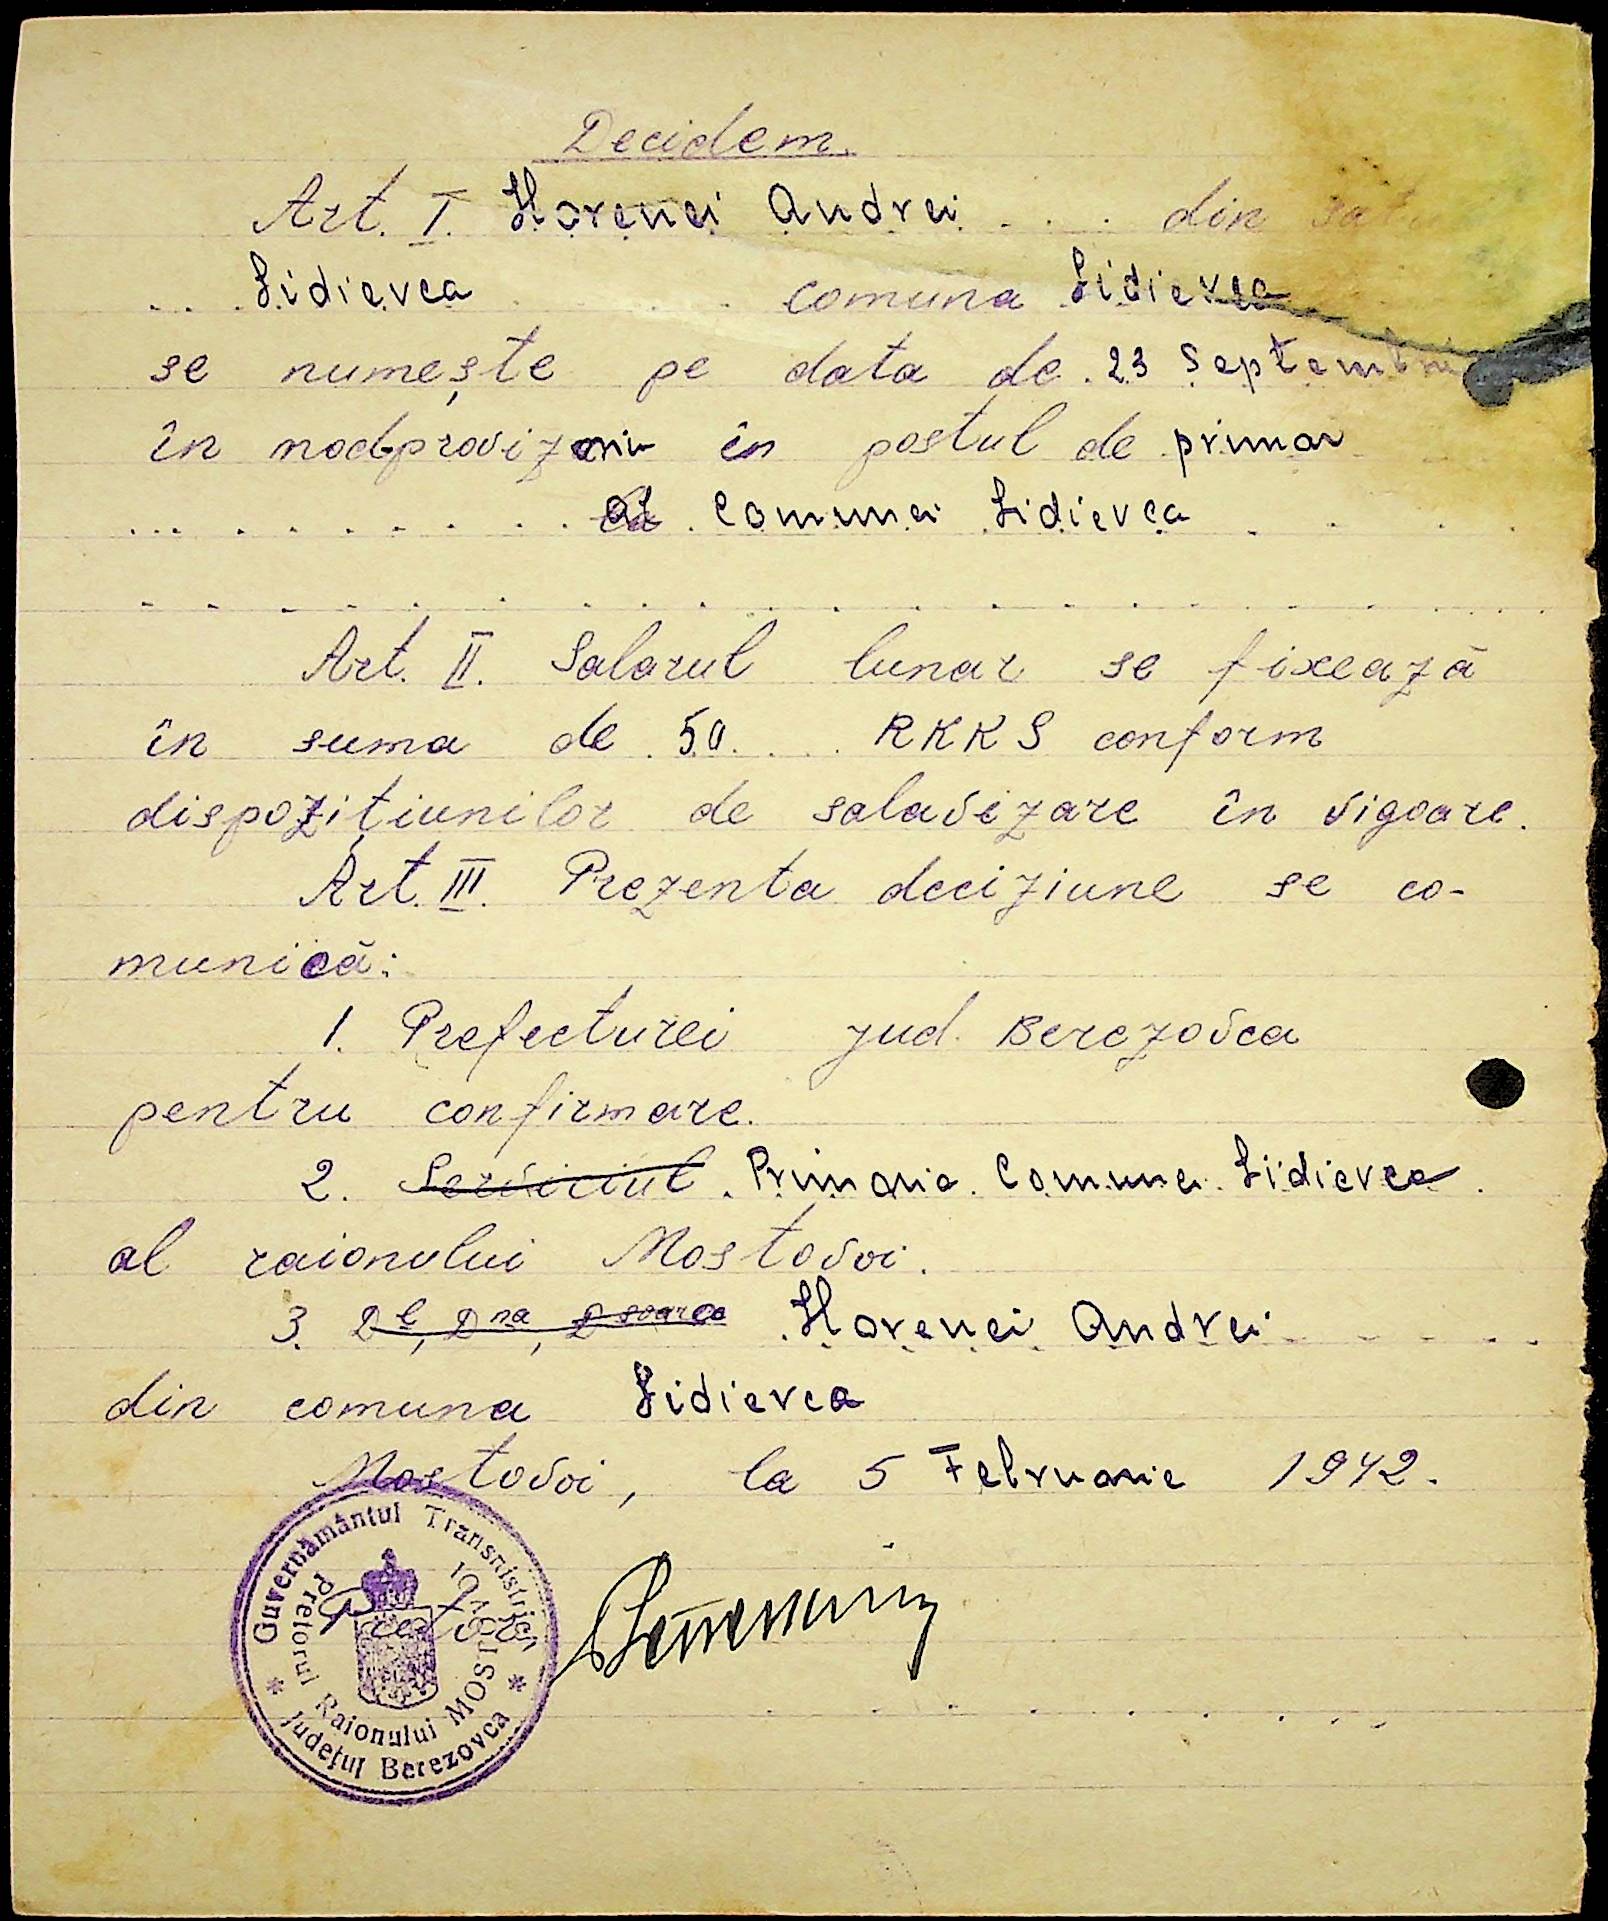 Decidem.
Art. I. Horenei Andrei din satu
Lidievca comuna Lidievca
se numește pe data de 23 Septembri
în mod provizoriu în postul de primar
al Comunei Lidievca
Art. II. Salarul lunar se fixează
în suma de 50 RKKS conform
dispozițiunilor de salavizare în vigoare.
Art. III. Prezenta deciziune se co-
munică:
1. Prefecturei jud. Berezovca
pentru confirmare.
2. Serviciul Primaria Comunei Lidievca
al raionului Mostovoi.
3. Dl, Dna, Dsoarea Horenei Andrei
din comuna Lidievca
Mostovoi, la 5 Februarie 1942.
Guvernământul Transnistriei
Pretorul Raionului MOSTOVOI
Județul Berezovca
Pretor